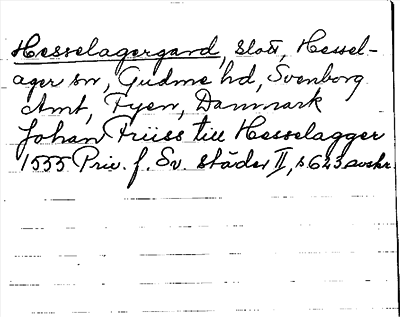 Hesselagergard, slott, Hessel-
ager sn, Gudme hd, Svenborg
Amt, Fyen, Danmark
Johan Friiss till Hesselagger
1555 Priv. f. Sv. städer II, s 623 avskr.